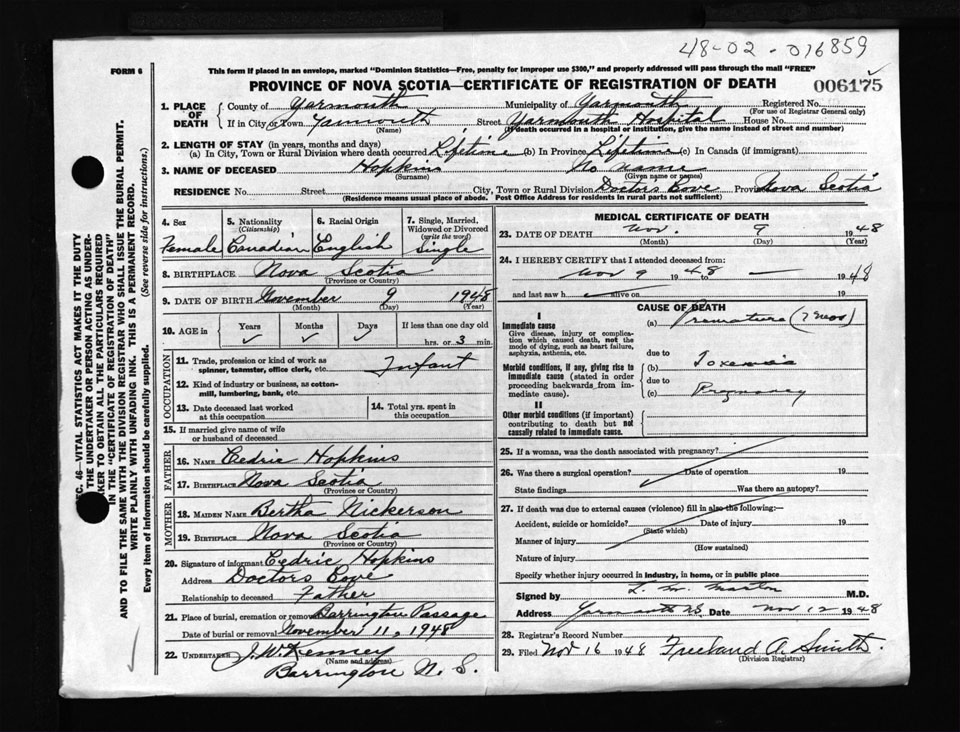 48-02-016859
FORM 6
This form if placed in an envelope, marked "Dominion Statistics—Free, penalty for improper use $300," and properly addressed will pass through the mail "FREE"
PROVINCE OF NOVA SCOTIA—CERTIFICATE OF REGISTRATION OF DEATH
006175
1. PLACE OF DEATH
County of Yarmouth Municipality of Yarmouth Registered No.
(For use of Registrar General only)
If in City or Town Yarmouth Street Yarmouth Hospital House No.
(Name) (If death occurred in a hospital or institution, give the name instead of street and number)
2. LENGTH OF STAY (in years, months and days)
(a) In City, Town or Rural Division where death occurred Lifetime (b) In Province Lifetime (c) In Canada (if immigrant)
3. NAME OF DECEASED Hopkins No name
(Surname) (Given name or names)
RESIDENCE No. Street City, Town or Rural Division Doctors Cove Province Nova Scotia
(Residence means usual place of abode. Post Office Address for residents in rural parts not sufficient)
4. Sex 5. Nationality (Citizenship) 6. Racial Origin 7. Single, Married, Widowed or Divorced (write the word)
Female Canadian English Single
8. BIRTHPLACE Nova Scotia
(Province or Country)
9. DATE OF BIRTH November 9 1948
(Month) (Day) (Year)
10. AGE in Years Months Days If less than one day old
hrs. or 3 min.
OCCUPATION
11. Trade, profession or kind of work as spinner, teamster, office clerk, etc. Infant
12. Kind of industry or business, as cotton-mill, lumbering, bank, etc.
13. Date deceased last worked at this occupation
14. Total yrs. spent in this occupation
15. If married give name of wife or husband of deceased
FATHER
16. NAME Cedric Hopkins
17. BIRTHPLACE Nova Scotia
(Province or Country)
MOTHER
18. MAIDEN NAME Bertha Nickerson
19. BIRTHPLACE Nova Scotia
(Province or Country)
20. Signature of informant Cedric Hopkins
Address Doctors Cove
Relationship to deceased Father
21. Place of burial, cremation or removal Barrington Passage
Date of burial or removal November 11, 1948
22. UNDERTAKER J. W. Kenney
(Name and address)
Barrington N. S.
MEDICAL CERTIFICATE OF DEATH
23. DATE OF DEATH Nov. 9 1948
(Month) (Day) (Year)
24. I HEREBY CERTIFY that I attended deceased from:
Nov 9 1948 to — 1948
and last saw h alive on 19
CAUSE OF DEATH
I
Immediate cause
Give disease, injury or complication which caused death, not the mode of dying, such as heart failure, asphyxia, asthenia, etc.
(a) Premature (7 mos)
due to
Morbid conditions, if any, giving rise to immediate cause (stated in order proceeding backwards from immediate cause).
(b) Toxemia
due to
(c) Pregnancy
II
Other morbid conditions (if important) contributing to death but not causally related to immediate cause.
25. If a woman, was the death associated with pregnancy?
26. Was there a surgical operation? Date of operation 19
State findings Was there an autopsy?
27. If death was due to external causes (violence) fill in also the following:—
Accident, suicide or homicide? Date of injury 19
(State which)
Manner of injury
(How sustained)
Nature of injury
Specify whether injury occurred in industry, in home, or in public place
Signed by L. M. M.D.
Address Yarmouth N.S. Date Nov 12 1948
28. Registrar's Record Number
29. Filed Nov 16 1948 Freeland A. Smith
(Division Registrar)
SEC. 46—VITAL STATISTICS ACT MAKES IT THE DUTY
OF THE UNDERTAKER OR PERSON ACTING AS UNDER-
TAKER TO OBTAIN ALL THE PARTICULARS REQUIRED
IN THE "CERTIFICATE OF REGISTRATION OF DEATH"
AND TO FILE THE SAME WITH THE DIVISION REGISTRAR WHO SHALL ISSUE THE BURIAL PERMIT.
WRITE PLAINLY WITH UNFADING INK. THIS IS A PERMANENT RECORD.
Every item of information should be carefully supplied. (See reverse side for instructions.)